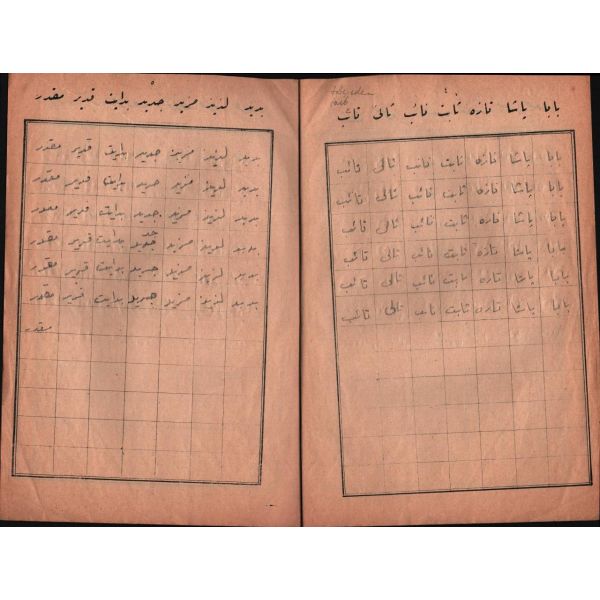 بابا پاشا تازه ثابت نائب تالى تائب
بابا پاشا تازه ثابت نائب تالى تائب
بابا پاشا تازه ثابت نائب تالى تائب
بابا پاشا تازه ثابت نائب تالى تائب
بابا پاشا تازه ثابت نائب تالى تائب
بابا پاشا تازه ثابت نائب تالى تائب
بابا پاشا تازه ثابت نائب تالى تائب
بديد لذيذ مزيد جديد بدايت قدير مقدر
بديد لذيذ مزيد جديد بدايت قدير مقدر
بديد لذيذ مزيد جديد بدايت قدير مقدر
بديد لذيذ مزيد جديد بدايت قدير مقدر
بديد لذيذ مزيد جديد بدايت قدير مقدر
بديد لذيذ مزيد جديد بدايت قدير مقدر
بديد لذيذ مزيد جديد بدايت قدير مقدر
مقدر